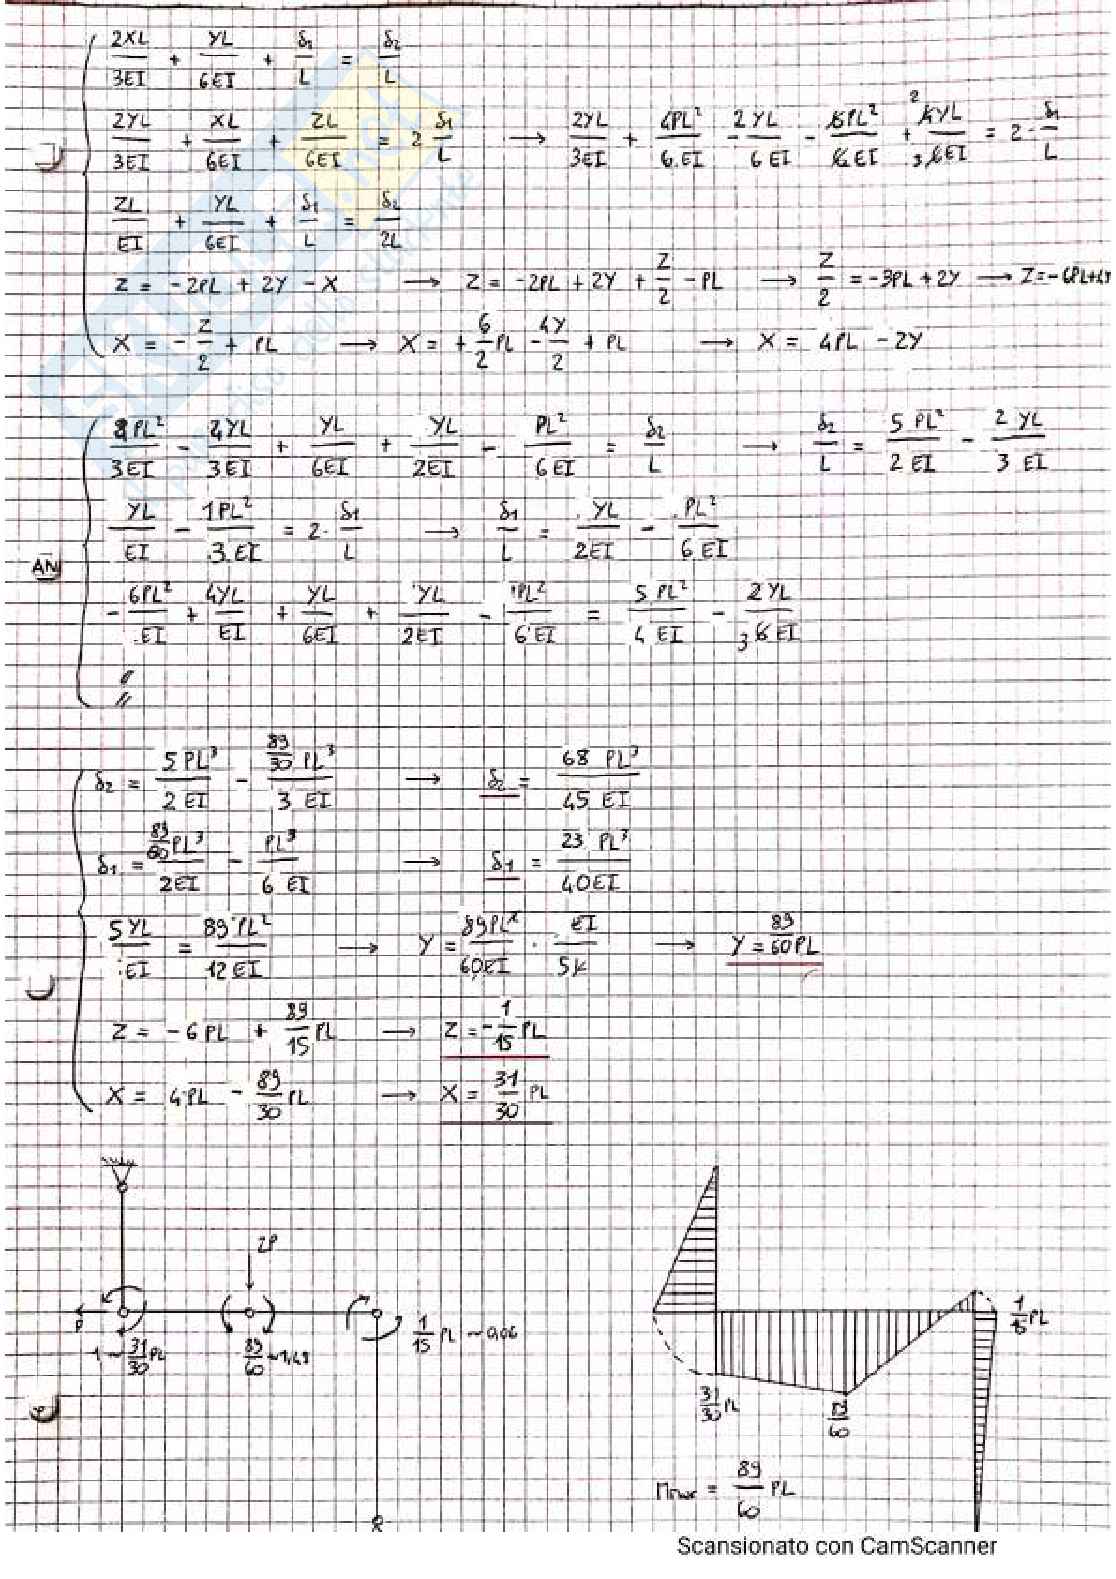 2XL/3EI + YL/6EI + δ1/L = δ2/L
2YL/3EI + XL/6EI + ZL/6EI = 2 δ1/L → 2YL/3EI + 4PL²/6EI - 2YL/6EI - 6PL²/6EI + 4YL/6EI = 2·δ1/L
ZL/EI + YL/6EI + δ1/L = δ2/2L
Z = -2PL + 2Y - X → Z = -2PL + 2Y + Z/2 - PL → Z/2 = -3PL + 2Y → Z = -6PL+4Y
X = -Z/2 + PL → X = +6/2 PL - 4Y/2 + PL → X = 4PL - 2Y
8PL²/3EI - 4YL/3EI + YL/6EI + YL/2EI - PL²/6EI = δ2/L → δ2/L = 5PL²/2EI - 2YL/3EI
YL/EI - 1PL²/3EI = 2·δ1/L → δ1/L = YL/2EI - PL²/6EI
AN
-6PL²/EI + 4YL/EI + YL/6EI + YL/2EI - PL²/6EI = 5PL²/4EI - 2YL/3 6EI
//
//
δ2 = 5PL³/2EI - 89/30 PL³/3EI → δ2 = 68 PL³/45 EI
δ1 = 89/60 PL³/2EI - PL³/6EI → δ1 = 23 PL³/40EI
5YL/EI = 89PL²/12EI → Y = 89PL²/60EI · EI/5L → Y = 89/60 PL
Z = -6PL + 89/15 PL → Z = -1/15 PL
X = 4PL - 89/30 PL → X = 31/30 PL
2P
P
1 ~ 31/30 PL
89/60 ~ 1,49
1/15 PL ~ 0,06
1/15 PL
31/30 PL
89/60
Mmax = 89/60 PL
Scansionato con CamScanner